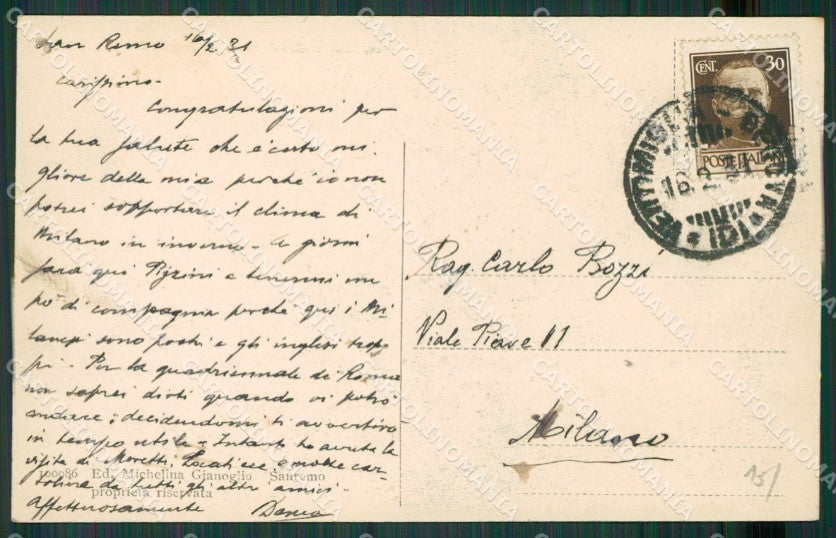 San Remo 16/2 31
Carissimo -
Congratulazioni per
la tua salute che è certo mi-
gliore della mia perché io non
potrei sopportare il clima di
Milano in inverno - A giorni
sarà qui e tenermi un
po' di compagnia perché qui i Mi-
lanesi sono pochi e gli inglesi trop-
pi - Per la quadriennale di Roma
non saprei dirti quando vi potrò
andare; decidendomi ti avvertirò
in tempo utile - Intanto ho avuto la
visita di Moretti, Locati ecc e molte car-
toline da tutti gli altri amici -
Affettuosamente
100086 Ed. Michelina Gianoglio Sanremo
proprietà riservata
CENT. 30
POSTE ITAL
VENTIMIGLIA - GENOVA
16.2.31
Rag. Carlo Bozzi
Viale Piave 11
Milano
15/
CARTOLINOMANIA